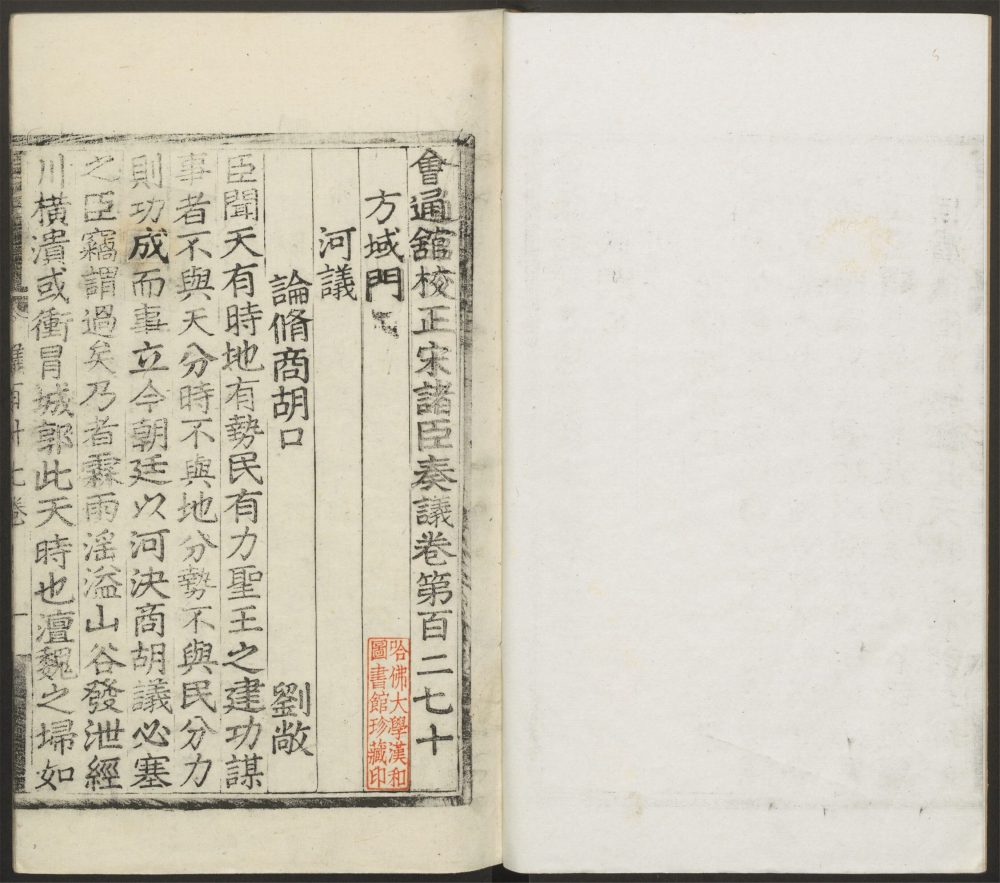 會通舘校正宋諸臣奏議卷第百二七十
方域門
河議
論脩商胡口
劉敞
臣聞天有時地有勢民有力聖王之建功謀
事者不與天分時不與地分勢不與民分力
則功成而事立今朝廷以河決商胡議必塞
之臣竊謂過矣乃者霖雨滛溢山谷發泄經
川橫潰或衝冒城郭此天時也澶魏之埽如
哈佛大學漢和
圖書館珍藏印